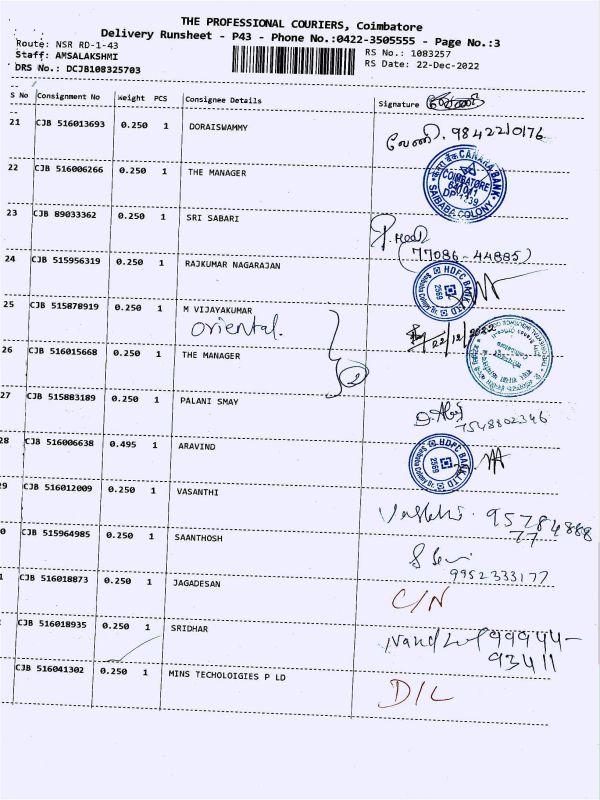 THE PROFESSIONAL COURIERS, Coimbatore
Delivery Runsheet - P43 - Phone No.:0422-3505555 - Page No.:3
Route: NSR RD-1-43
RS No.: 1083257
Staff: AMSALAKSHMI
RS Date: 22-Dec-2022
DRS No.: DCJB108325703
S No Consignment No Weight PCS Consignee Details Signature
21 CJB 516013693 0.250 1 DORAISWAMMY
வேணி. 9842210176
22 CJB 516006266 0.250 1 THE MANAGER
CANARA BANK
COIMBATORE
641011
SAIBABA COLONY
23 CJB 89033362 0.250 1 SRI SABARI
(77086-44885)
24 CJB 515956319 0.250 1 RAJKUMAR NAGARAJAN
HDFC BANK LTD
2569
25 CJB 515878919 0.250 1 M VIJAYAKUMAR
oriental.
22/12/2022
26 CJB 516015668 0.250 1 THE MANAGER
2
27 CJB 515883189 0.250 1 PALANI SMAY
7548802346
28 CJB 516006638 0.495 1 ARAVIND
HDFC BANK LTD
2569
29 CJB 516012009 0.250 1 VASANTHI
Vasathi. 95784888
77
0 CJB 515964985 0.250 1 SAANTHOSH
9952333177
1 CJB 516018873 0.250 1 JAGADESAN
C/N
CJB 516018935 0.250 1 SRIDHAR
99944-
93411
CJB 516041302 0.250 1 MINS TECHOLOIGIES P LD
D/L